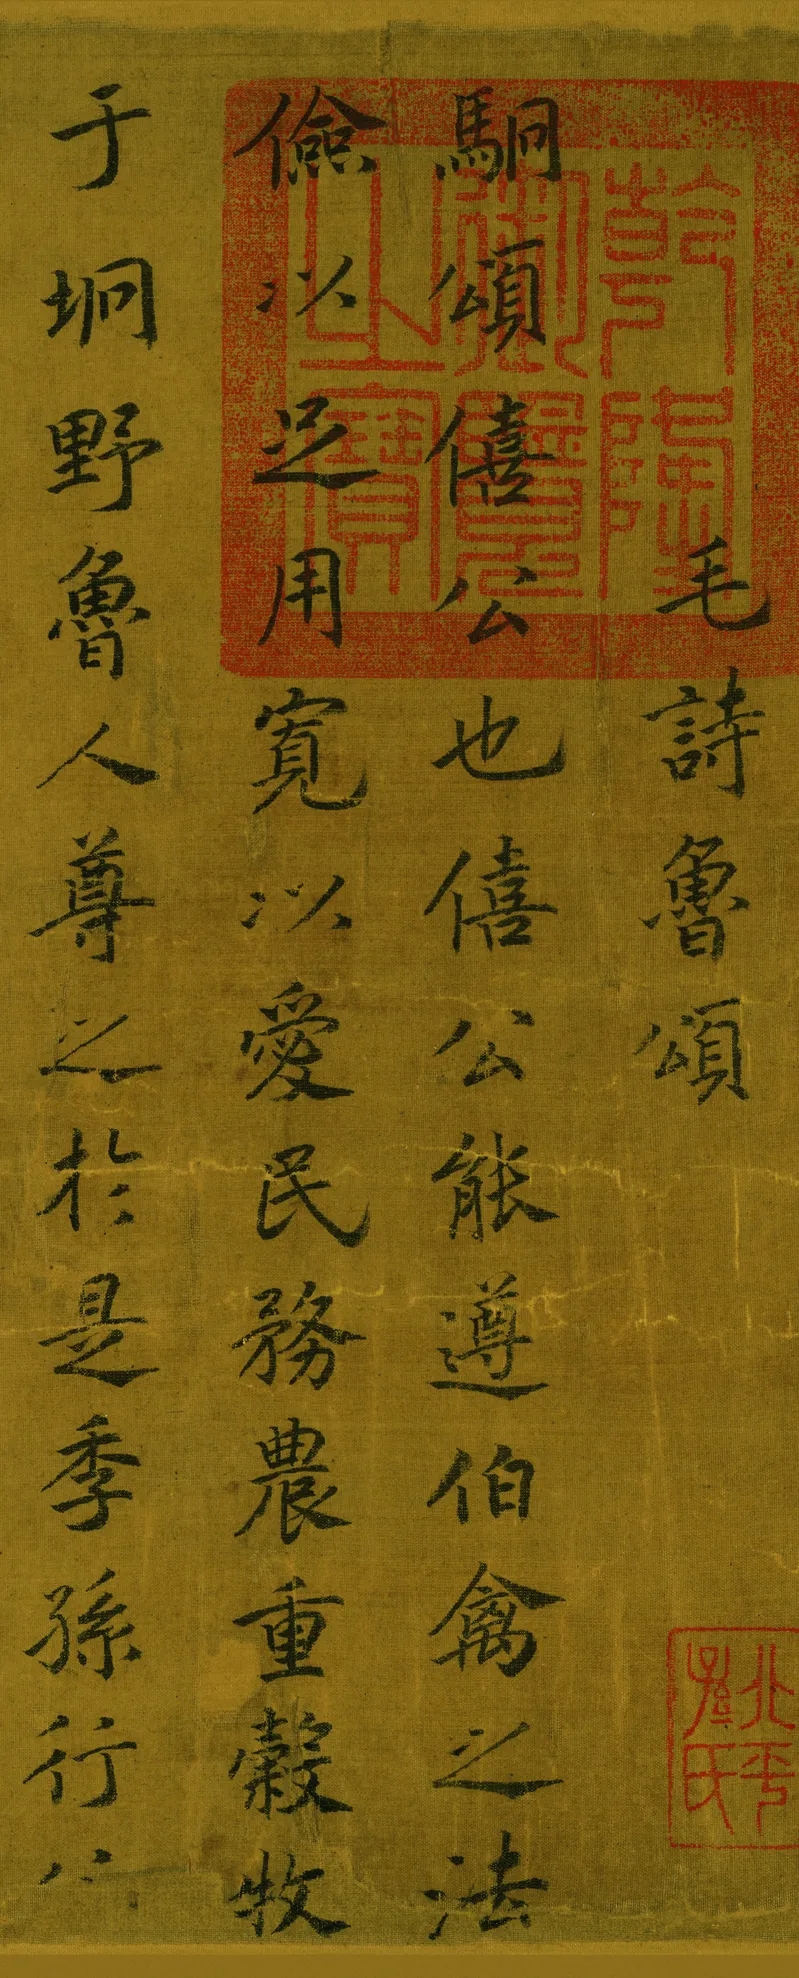 乾隆御覽之寶
毛詩魯頌
北平孫氏
駉頌僖公也僖公能遵伯禽之法
儉以足用寬以愛民務農重穀牧
于坰野魯人尊之於是季孫行